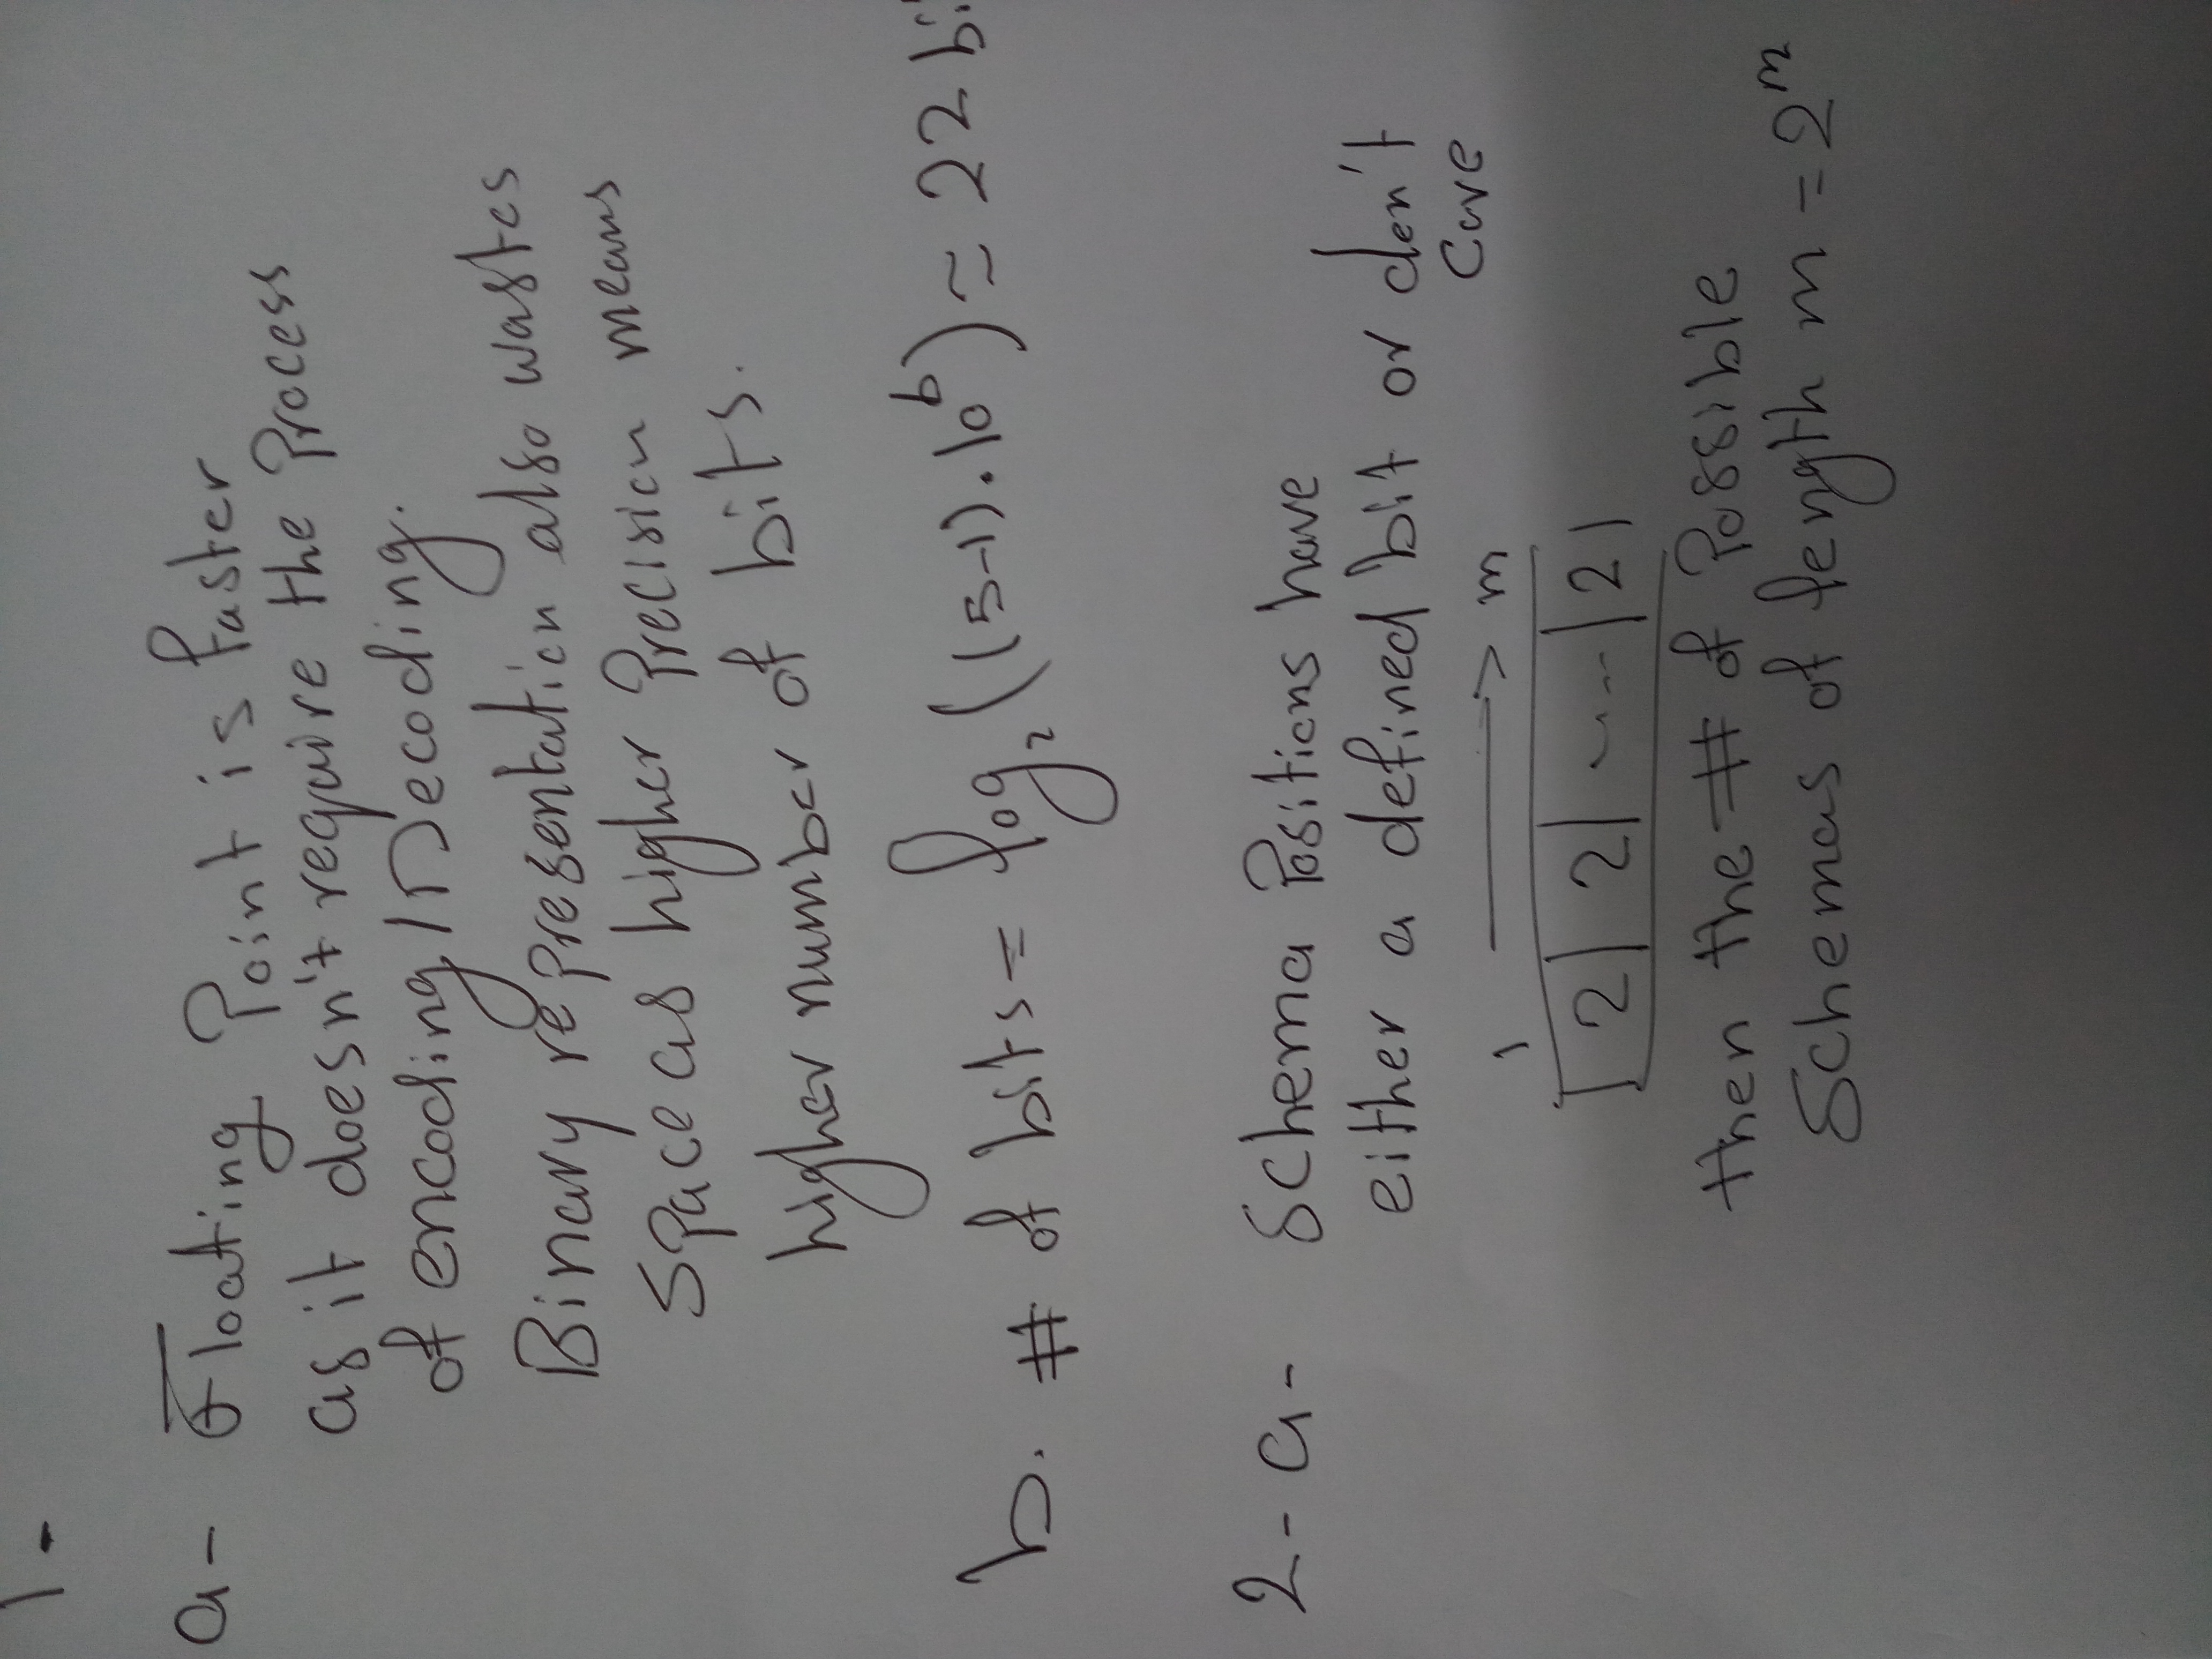 1-
a- Floating Point is faster
as it doesn't require the Process
of encoding/Decoding.
Binary representation also wastes
Space as higher Precision means
higher number of bits.
b. # of bits = log₂((5-1).10⁶) ≈ 22 bi
2- a- Schema Positions have
either a defined bit or don't
Care
1 → m
2 | 2 | ---- | 2 |
then the # of Possible
Schemas of length m = 2ᵐ